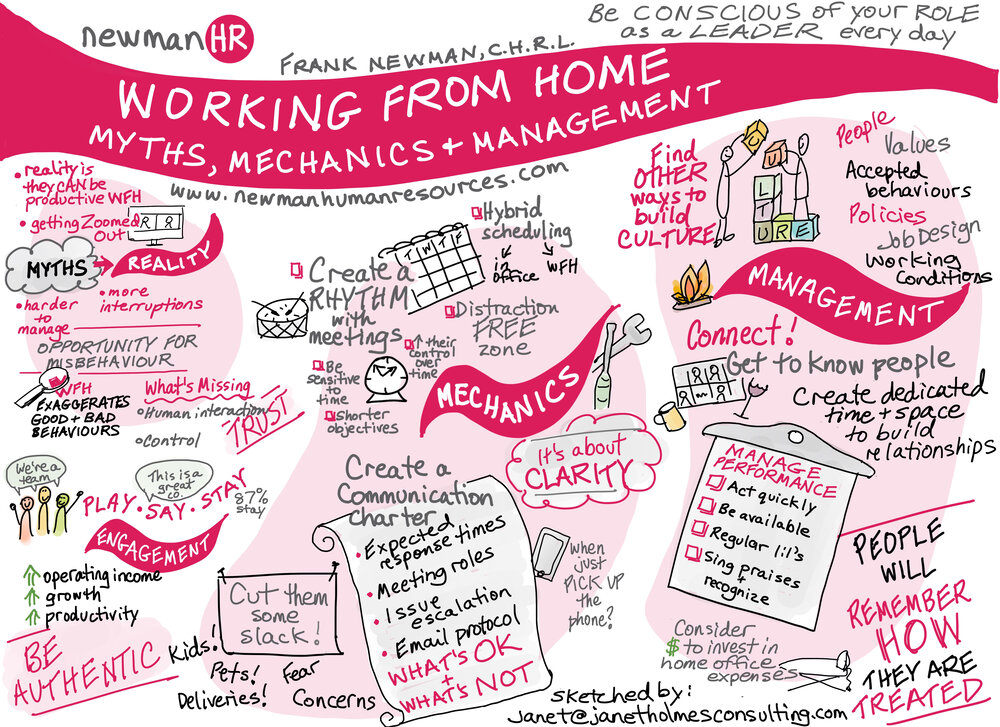 newman HR
FRANK NEWMAN, C.H.R.L.
BE CONSCIOUS of your ROLE
as a LEADER every day
WORKING FROM HOME
MYTHS, MECHANICS + MANAGEMENT
www.newmanhumanresources.com
• reality is
they CAN be
productive WFH
• getting Zoomed
OUT
MYTHS
REALITY
• harder
to
manage
• more
interruptions
OPPORTUNITY FOR
MISBEHAVIOUR
WFH
EXAGGERATES
GOOD + BAD
BEHAVIOURS
What's Missing
• Human interaction
• Control
TRUST
We're a
team
This is a
great
co.
PLAY • SAY • STAY
87%
stay
ENGAGEMENT
operating income
growth
productivity
BE
AUTHENTIC
Hybrid
scheduling
in
office
WFH
T W T F
Create a
RHYTHM
with
meetings
Distraction
FREE
zone
Be
sensitive
to
time
↑ their
control
over
time
Shorter
objectives
MECHANICS
It's about
CLARITY
Create a
Communication
charter
• Expected
response times
• Meeting roles
• Issue
escalation
• Email protocol
WHAT'S OK
+
WHAT'S NOT
when
just
PICK UP
the
phone?
Cut them
some
slack!
Kids!
Pets!
Fear
Deliveries!
Concerns
Find
OTHER
ways to
build
CULTURE
C U
L
T
U R E
People
Values
Accepted
behaviours
Policies
Job Design
Working
Conditions
MANAGEMENT
Connect!
Get to know people
Create dedicated
time + space
to build
relationships
MANAGE
PERFORMANCE
Act quickly
Be available
Regular 1:1's
Sing praises
+
recognize
Consider
$ to invest in
home office
expenses
PEOPLE
WILL
REMEMBER
HOW
THEY ARE
TREATED
sketched by:
janet@janetholmesconsulting.com